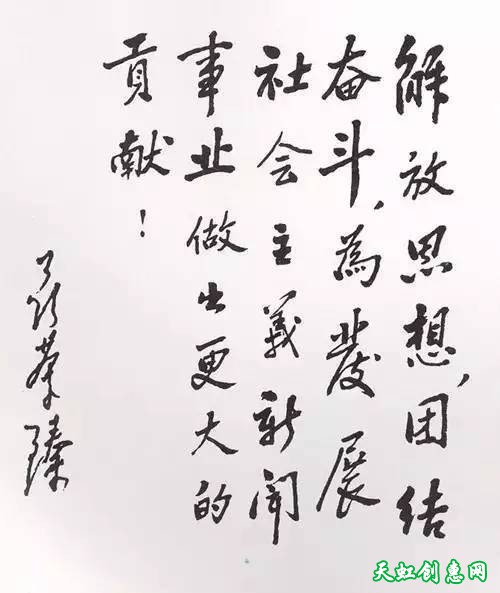 解放思想,团结
奋斗,為發展
社会主義新闻
事业做出更大的
貢献!
聂荣臻
天虹创惠网